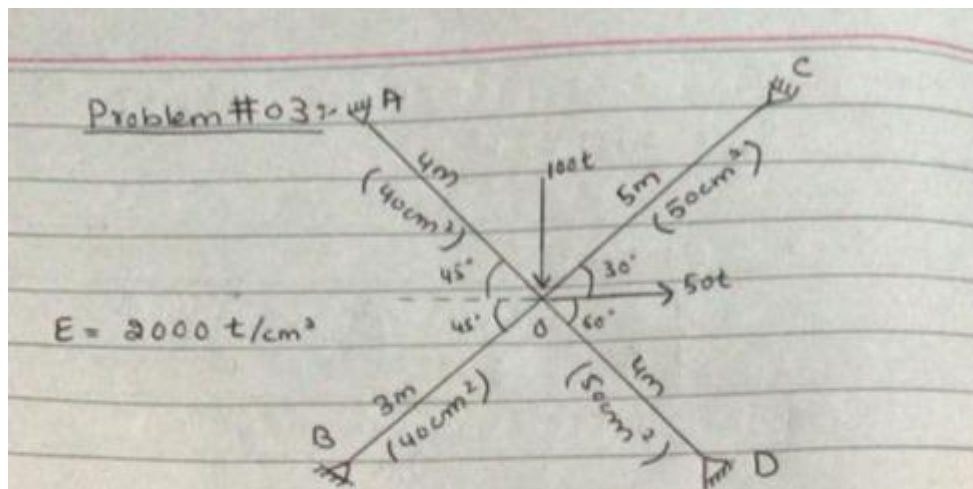 Problem #03:-
A
C
4m
(40cm²)
100t
5m
(50cm²)
45°
30°
50t
E = 2000 t/cm²
45°
O
60°
3m
(40cm²)
4m
(50cm²)
B
D